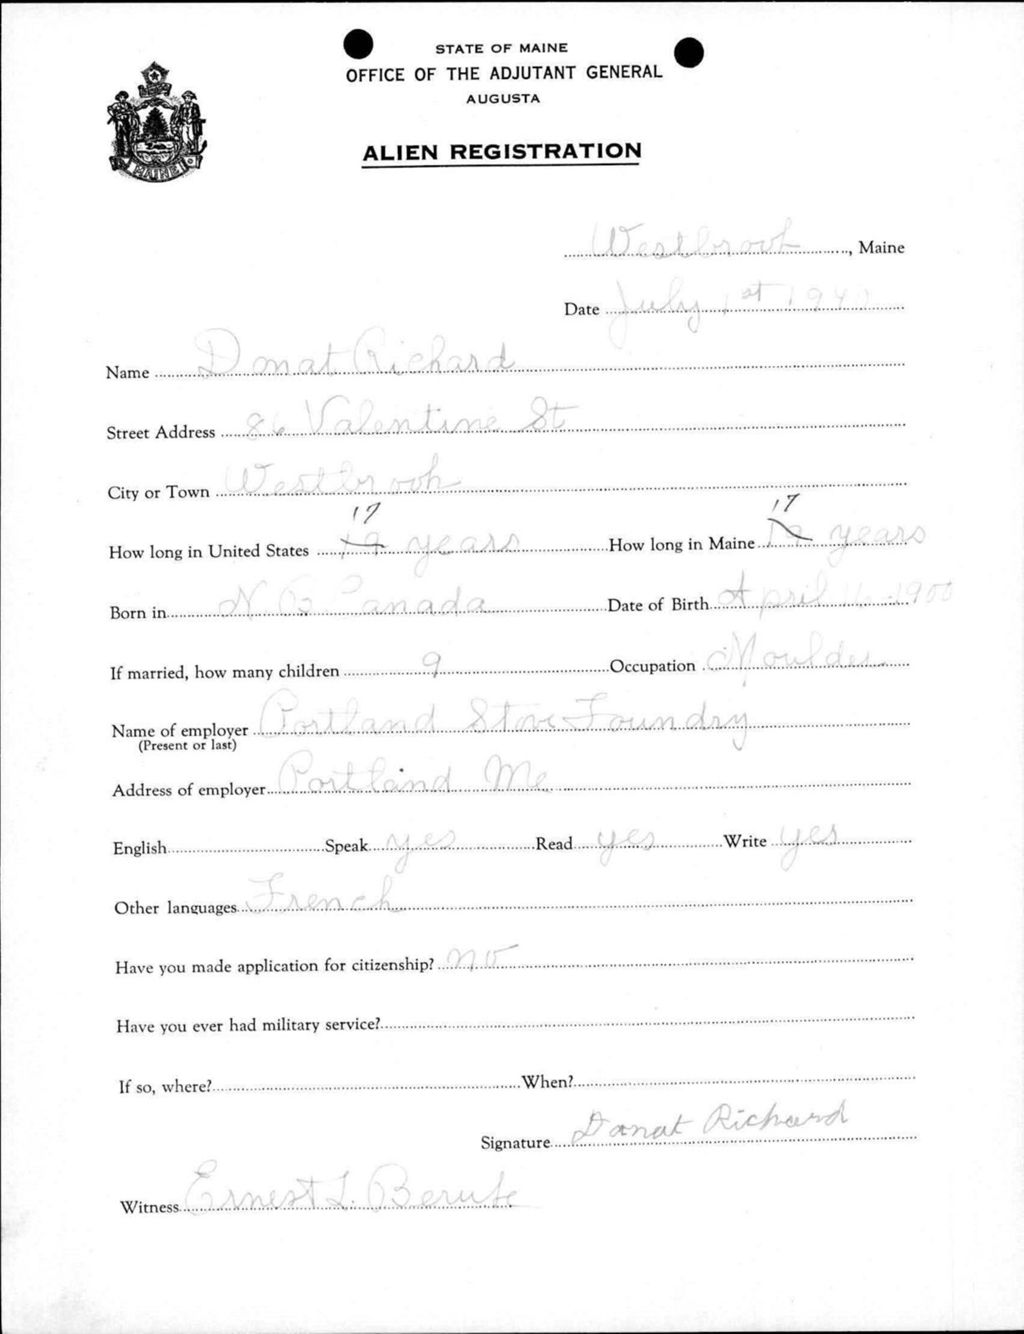 STATE OF MAINE
OFFICE OF THE ADJUTANT GENERAL
AUGUSTA
ALIEN REGISTRATION
MAINE
Westbrook, Maine
Date July 1st 1940
Name Donat Richard
Street Address 86 Valentine St
City or Town Westbrook
17 17
How long in United States 19 years How long in Maine 19 years
Born in N B Canada Date of Birth April 16-1900
If married, how many children 9 Occupation Moulder
Name of employer Portland Stove Foundry
(Present or last)
Address of employer Portland Me.
English Speak yes Read yes Write yes
Other languages French
Have you made application for citizenship? no
Have you ever had military service?
If so, where? When?
Signature Donat Richard
Witness Ernest L. Berube